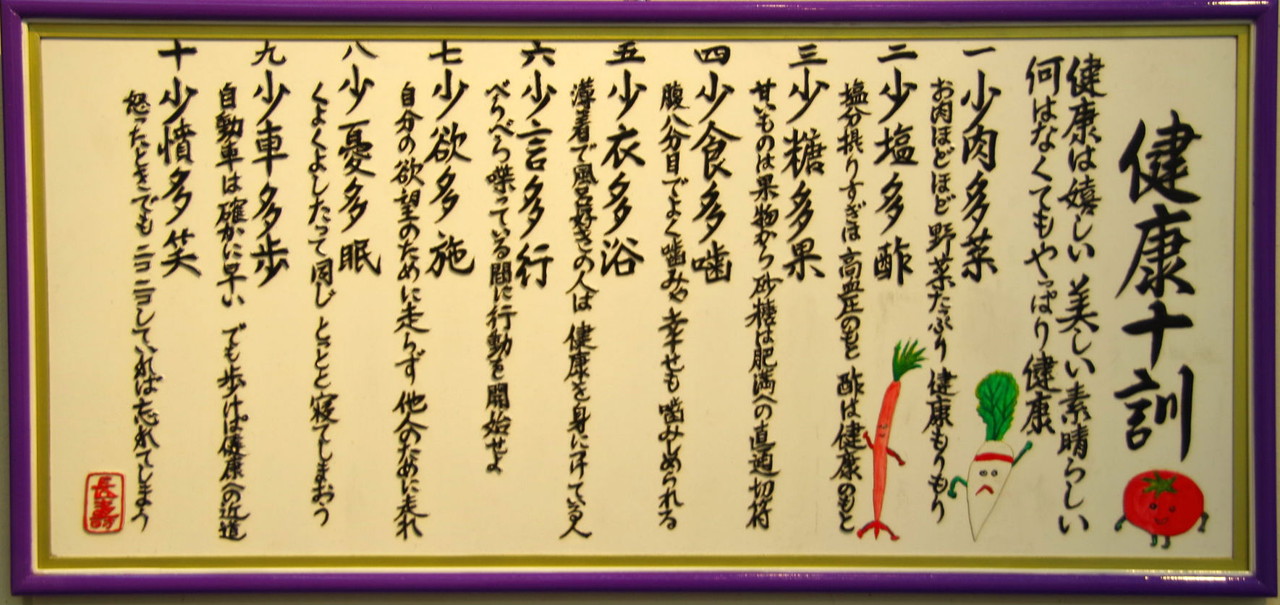 健康十訓
健康は嬉しい 美しい 素晴らしい
何はなくてもやっぱり健康
一 少肉多菜
お肉ほどほど 野菜たっぷり 健康もりもり
二 少塩多酢
塩分摂りすぎは 高血圧のもと 酢は健康のもと
三 少糖多果
甘いものは果物から 砂糖は肥満への直通切符
四 少食多噛
腹八分目でよく噛みゃ 幸せも 噛みしめられる
五 少衣多浴
薄着で風呂好きの人は 健康を身につけている人
六 少言多行
べらべら喋っている間に行動を開始せよ
七 少欲多施
自分の欲望のために走らず 他人のために走れ
八 少憂多眠
くよくよしたって同じ とっとと寝てしまおう
九 少車多歩
自動車は確かに早い でも歩けば健康への近道
十 少憤多笑
怒ったときでも ニコニコしていれば忘れてしまう
長寿